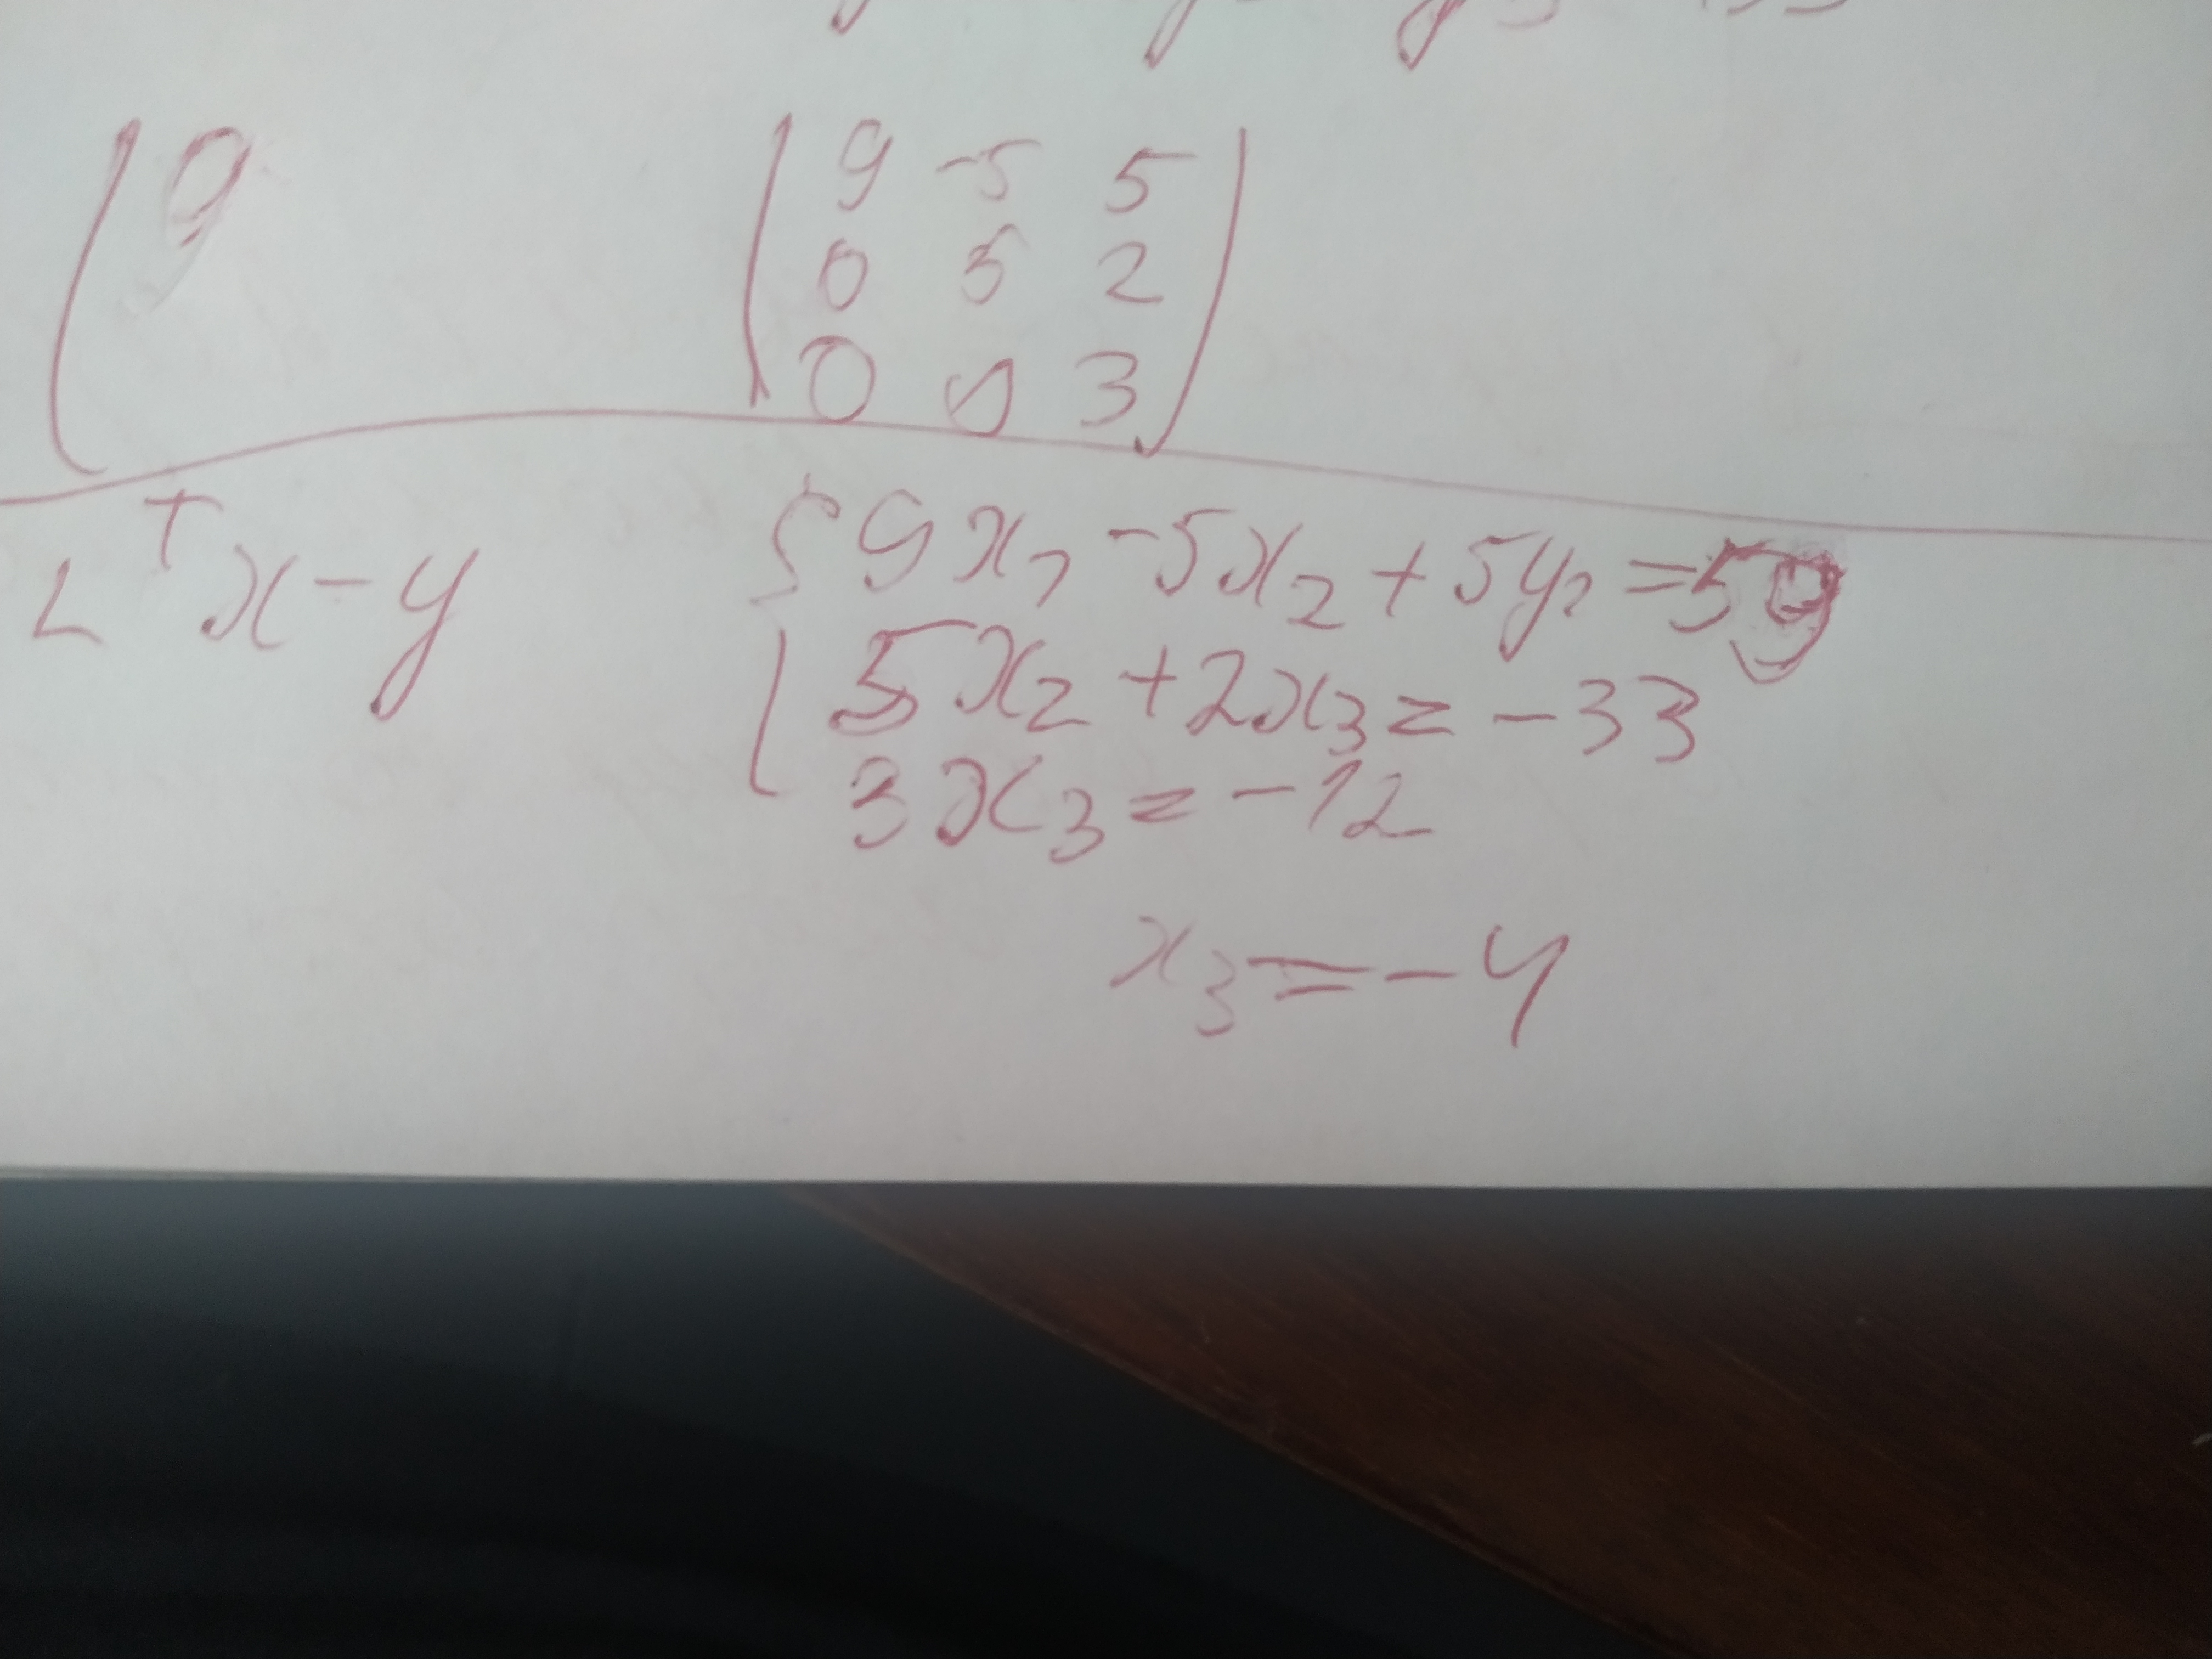 ( 9 -5 5 )
0 5 2
0 0 3
(9
L^T x - y
{ 9x₁ - 5x₂ + 5y₂ = 59
5x₂ + 2x₃ = -33
3x₃ = -12
x₃ = -4